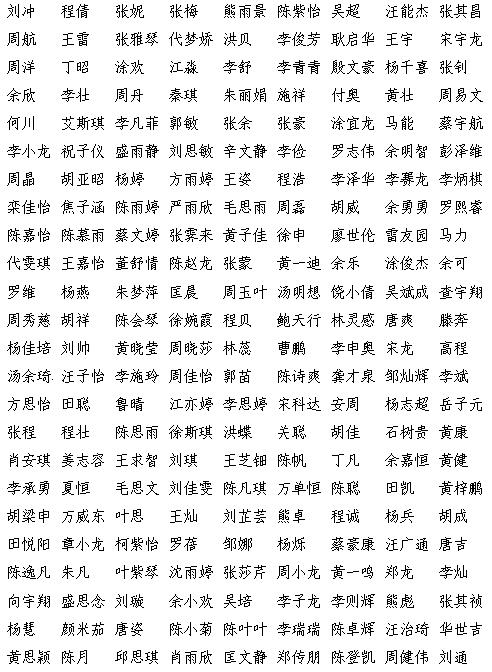 刘冲 程倩 张妮 张梅 熊雨景 陈紫怡 吴超 汪能杰 张其昌
周航 王雷 张雅琴 代梦娇 洪贝 李俊芳 耿启华 王宇 宋宇龙
周洋 丁昭 涂欢 江淼 李舒 李青青 殷文豪 杨千喜 张钊
余欣 李壮 周丹 秦琪 朱丽娟 施祥 付奥 黄壮 周易文
何川 艾斯琪 李凡菲 郭敏 张余 张豪 涂宜龙 马能 蔡宇航
李小龙 祝子仪 盛雨静 刘思敏 辛文静 李俭 罗志伟 余明智 彭泽维
周晶 胡亚昭 杨婷 方雨婷 王姿 程浩 李泽华 李赛龙 李炳棋
栾佳怡 焦子涵 陈雨婷 严雨欣 毛思雨 周磊 胡威 余勇勇 罗熙睿
陈嘉怡 陈慕雨 蔡文婷 张霁来 黄子佳 徐申 廖世伦 雷友园 马力
代雯琪 王嘉怡 董舒情 陈赵龙 张蒙 黄一迪 余乐 涂俊杰 余可
罗维 杨燕 朱梦萍 匡晨 周玉叶 汤明想 饶小倩 吴斌成 查宇翔
周秀慈 胡祥 陈会琴 徐婉霞 程贝 鲍天行 林灵感 唐爽 滕奔
杨佳培 刘帅 黄晓莹 周晓莎 林蕊 曹鹏 李申奥 宋龙 高程
汤余琦 汪子怡 李施玲 周佳怡 郭苗 陈诗爽 龚才泉 邹灿辉 李斌
方思怡 田聪 鲁晴 江亦婷 李思婷 宋科达 安周 杨志超 岳子元
张程 程壮 陈思雨 徐斯琪 洪蝶 关聪 胡佳 石树贵 黄康
肖安琪 姜志容 王求智 刘琪 王芝钿 陈帆 丁凡 余嘉恒 黄健
李承勇 夏恒 毛思文 刘佳雯 陈凡琪 万单恒 陈聪 田凯 黄梓鹏
胡梁申 万威东 叶思 王灿 刘芷芸 熊卓 程诚 杨兵 胡成
田悦阳 章小龙 柯紫怡 罗蓓 邹娜 杨烁 蔡豪康 汪广通 唐吉
陈逸凡 朱凡 叶紫琴 沈雨婷 张莎芹 周小龙 黄一鸣 郑龙 李灿
向宇翔 盛思念 刘璇 余小欢 吴培 李子龙 李则辉 熊彪 张其祯
杨慧 颜米茄 唐姿 陈小菊 陈叶叶 李瑞瑞 陈卓辉 汪治琦 华世吉
黄思颖 陈月 邱思琪 肖雨欣 匡文静 郑传朋 陈登凯 周健伟 刘通